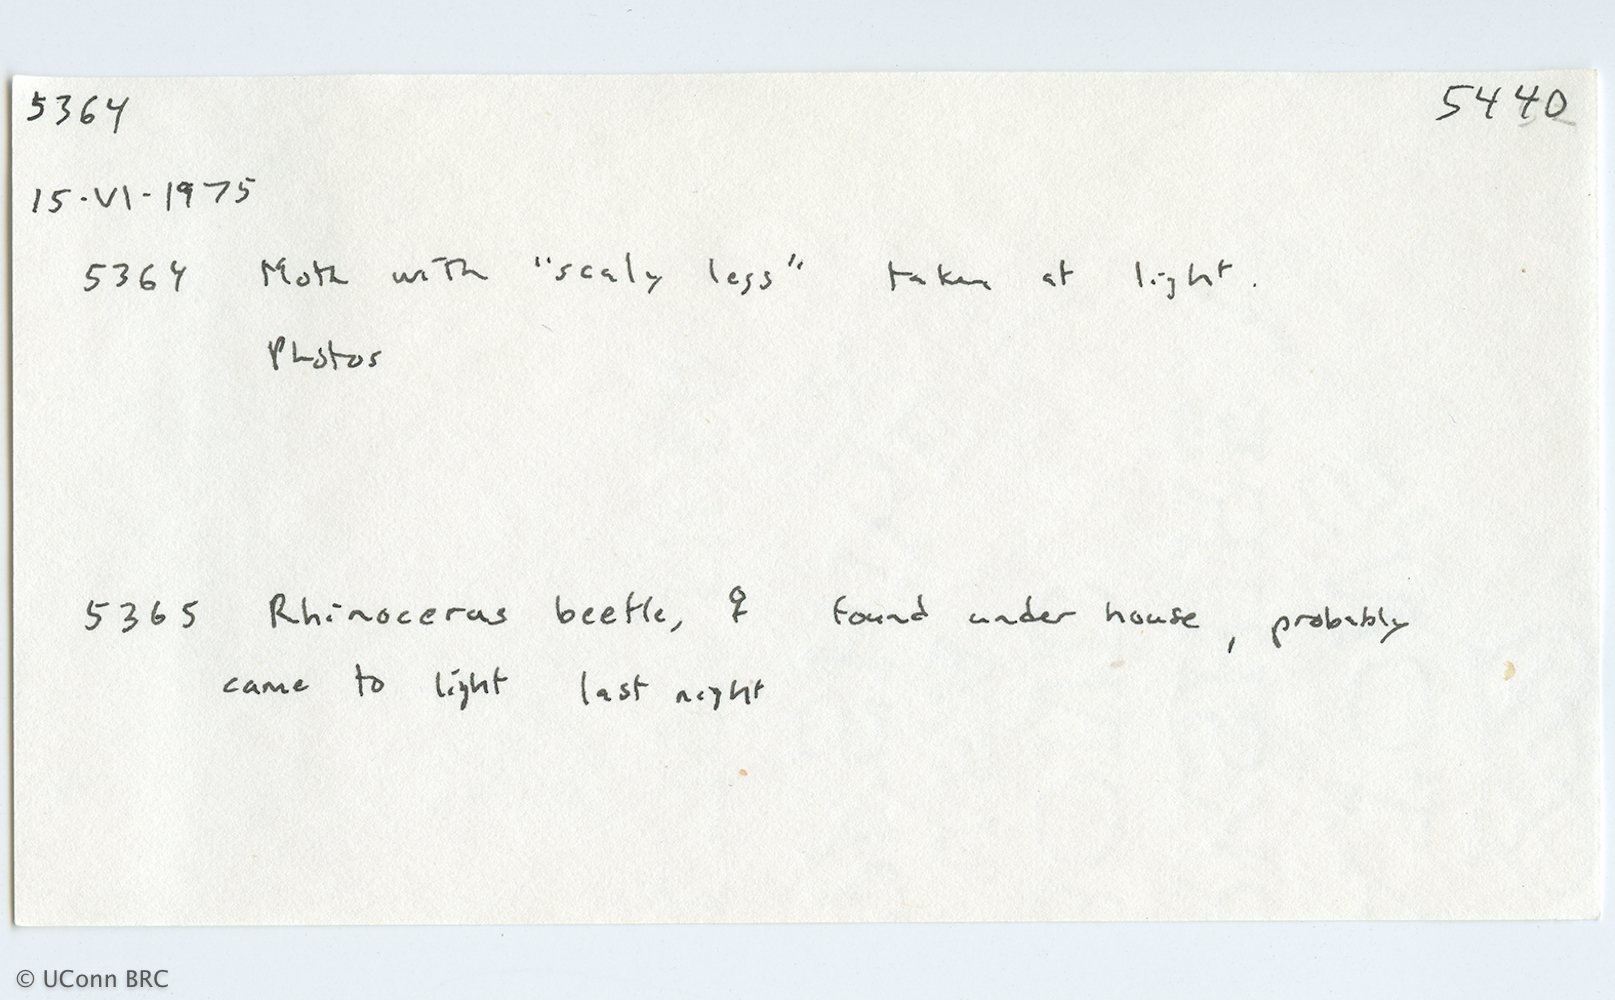 5364 5440
15-VI-1975
5364 Moth with "scaly legs" taken at light.
Photos
5365 Rhinoceras beetle, ♀ found under house, probably
came to light last night
© UConn BRC